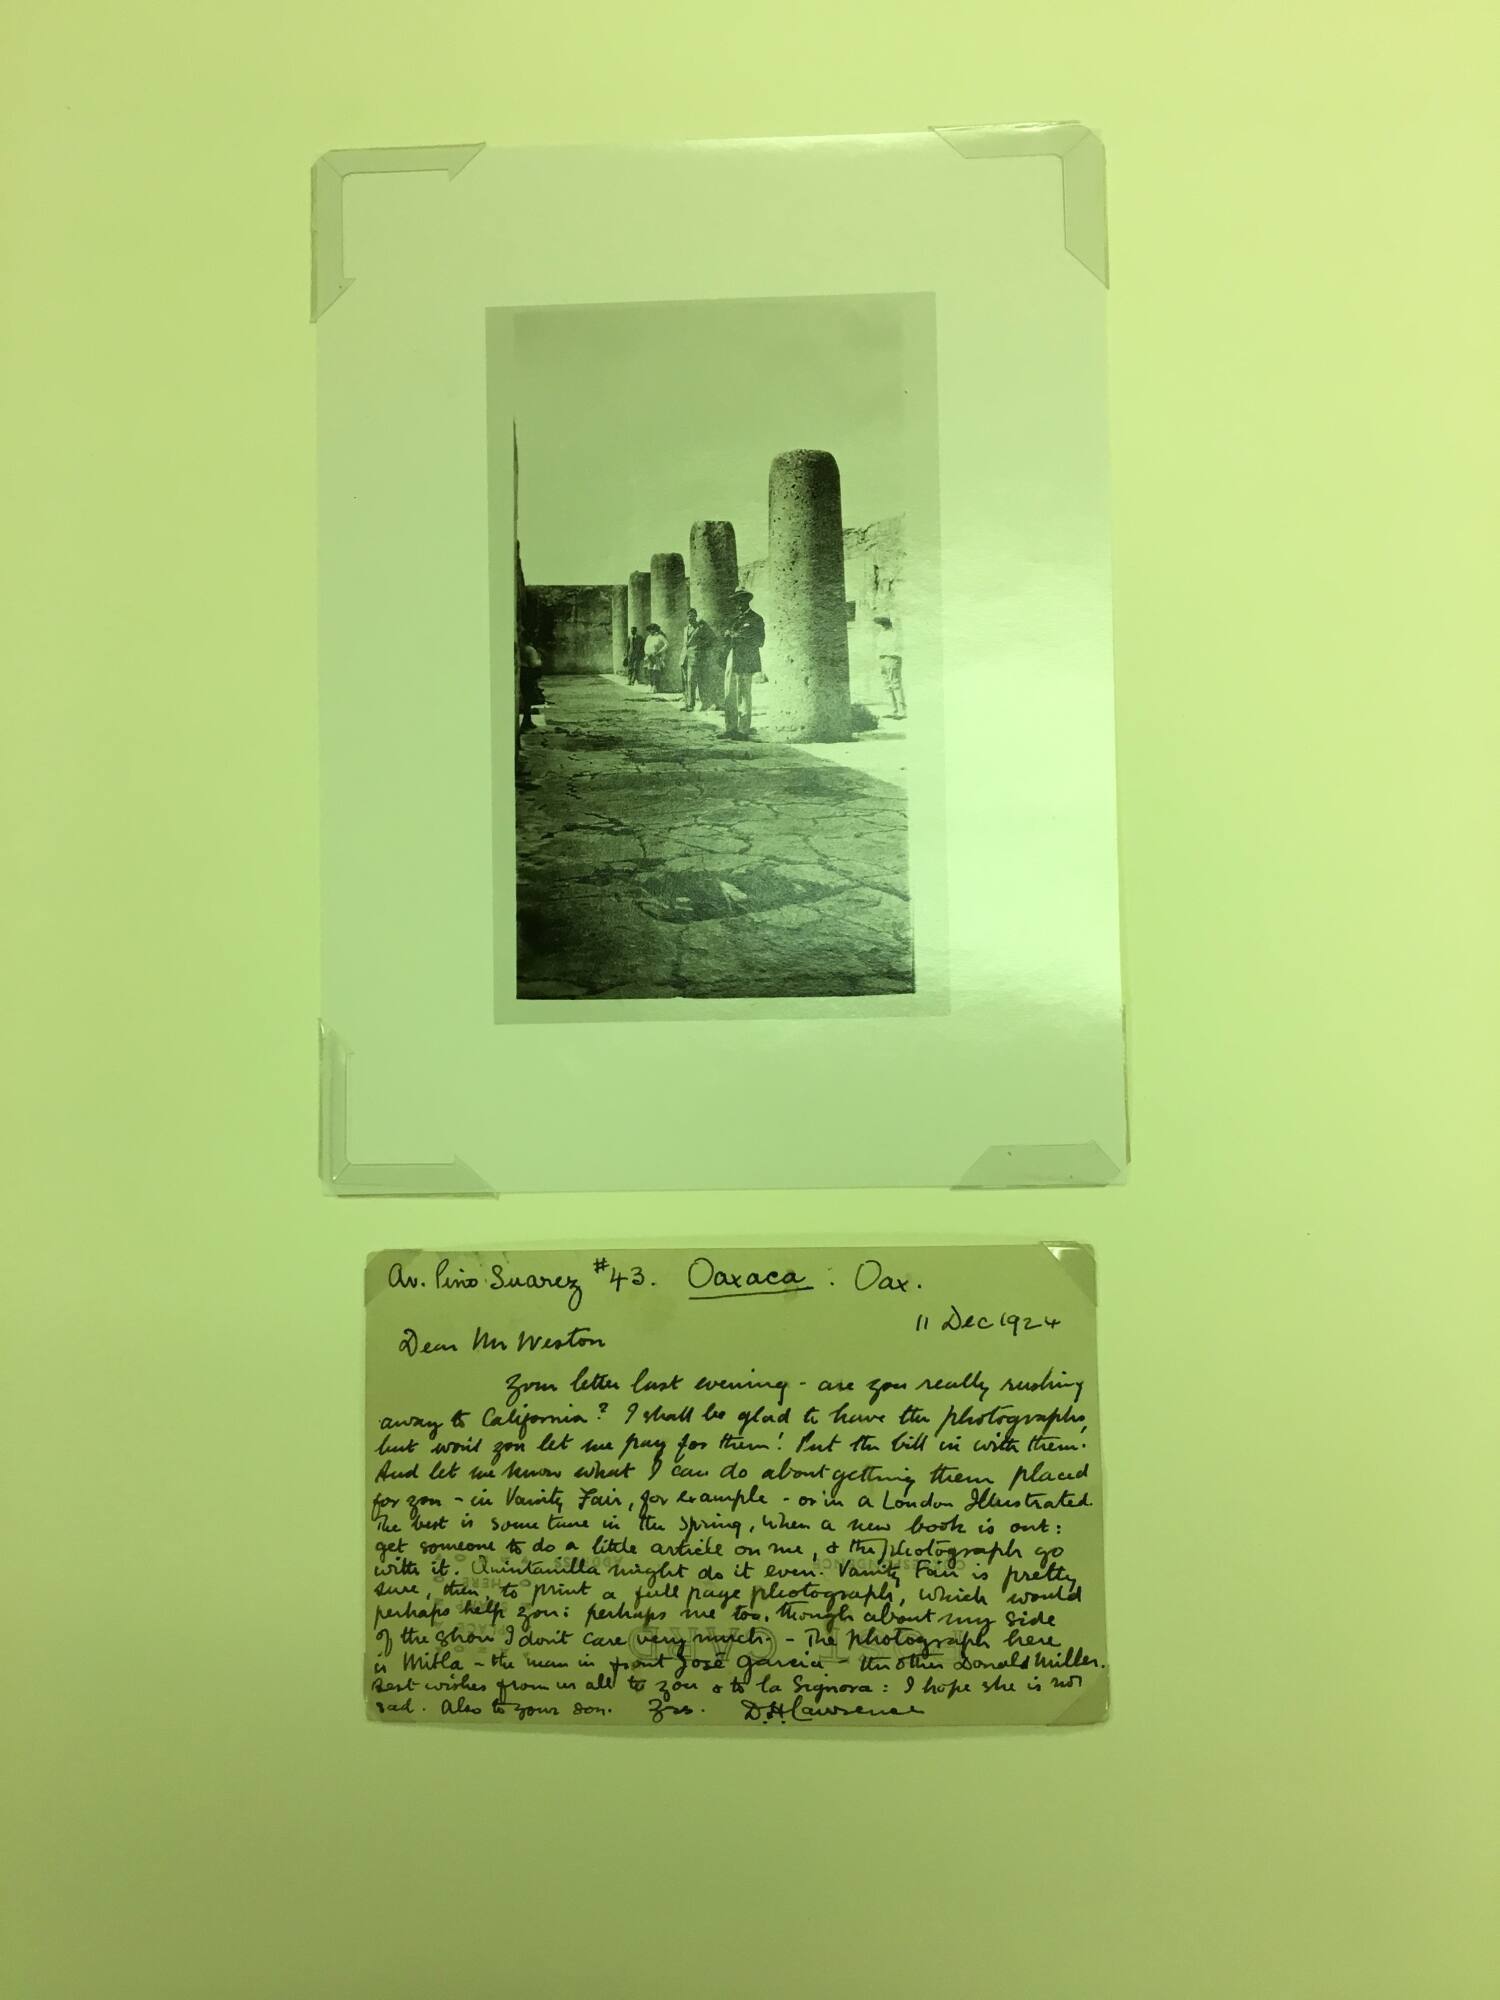 Av. Pino Suarez #43. Oaxaca : Oax.
11 Dec 1924
Dear Mr Weston
Your letter last evening - are you really rushing
away to California? I shall be glad to have the photographs,
but won't you let me pay for them! Put the bill in with them.
And let me know what I can do about getting them placed
for you - in Vanity Fair, for example - or in a London Illustrated.
The best is some time in the Spring, when a new book is out:
get someone to do a little article on me, & the photograph go
with it. Quintanilla might do it even. Vanity Fair is pretty
sure, then, to print a full page photograph, which would
perhaps help you: perhaps me too, though about my side
of the show I don't care very much. - The photograph here
is Mitla - the man in front José Garcia - the other Donald Miller.
Best wishes from us all to you & to la Signora: I hope she is not
sad. Also to your son. Yrs. D.H. Lawrence
POST CARD
CORRESPONDENCE
ADDRESS
PLACE
STAMP
HERE